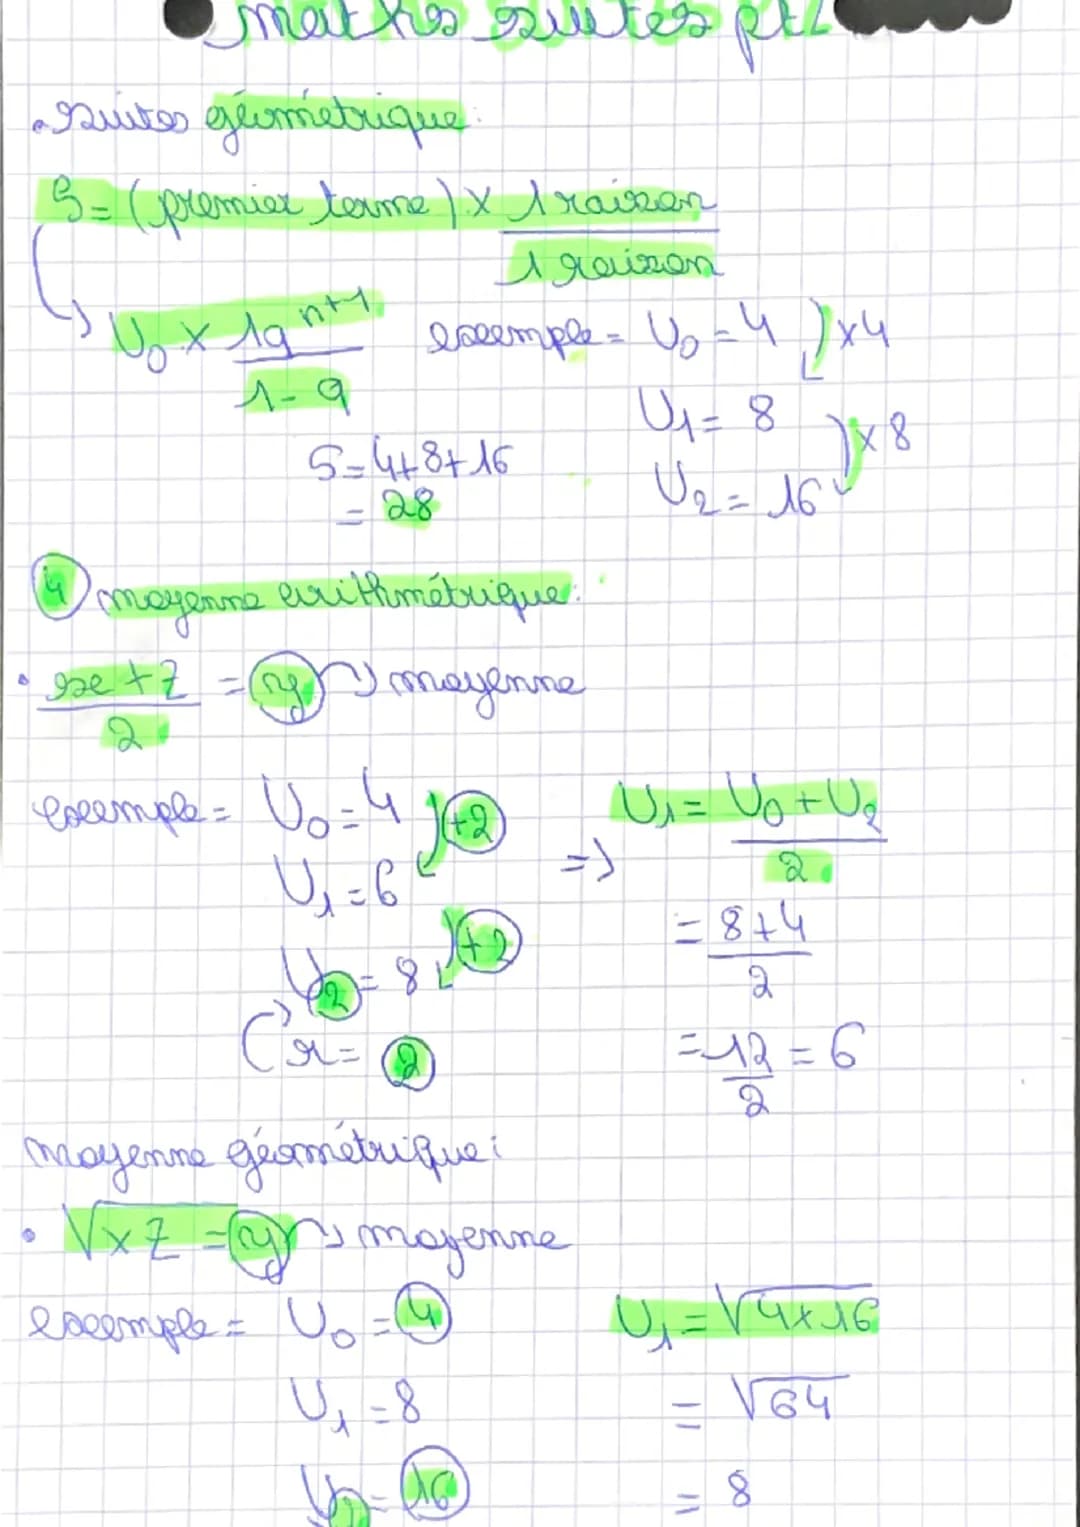 maths suites pt2
• Suites géométrique:
S = (premier terme) × 1 raison
1 raison
U₀ × 1q^n+1
1 - q
exemple = U₀ = 4 ) ×4
U₁ = 8
S = 4+8+16
) ×8
U₂ = 16
= 28
4) moyenne arithmétrique:
• x + z = y → moyenne
2
exemple = U₀ = 4
+2
U₁ = U₀ + U₂
U₁ = 6
=> 2
U₂ = 8
+2
= 8+4
2
r = 2
= 12 = 6
2
moyenne géométrique:
• √x z = y → moyenne
exemple = U₀ = 4
U₁ = √4×16
U₁ = 8
= √64
U₂ = 16
= 8